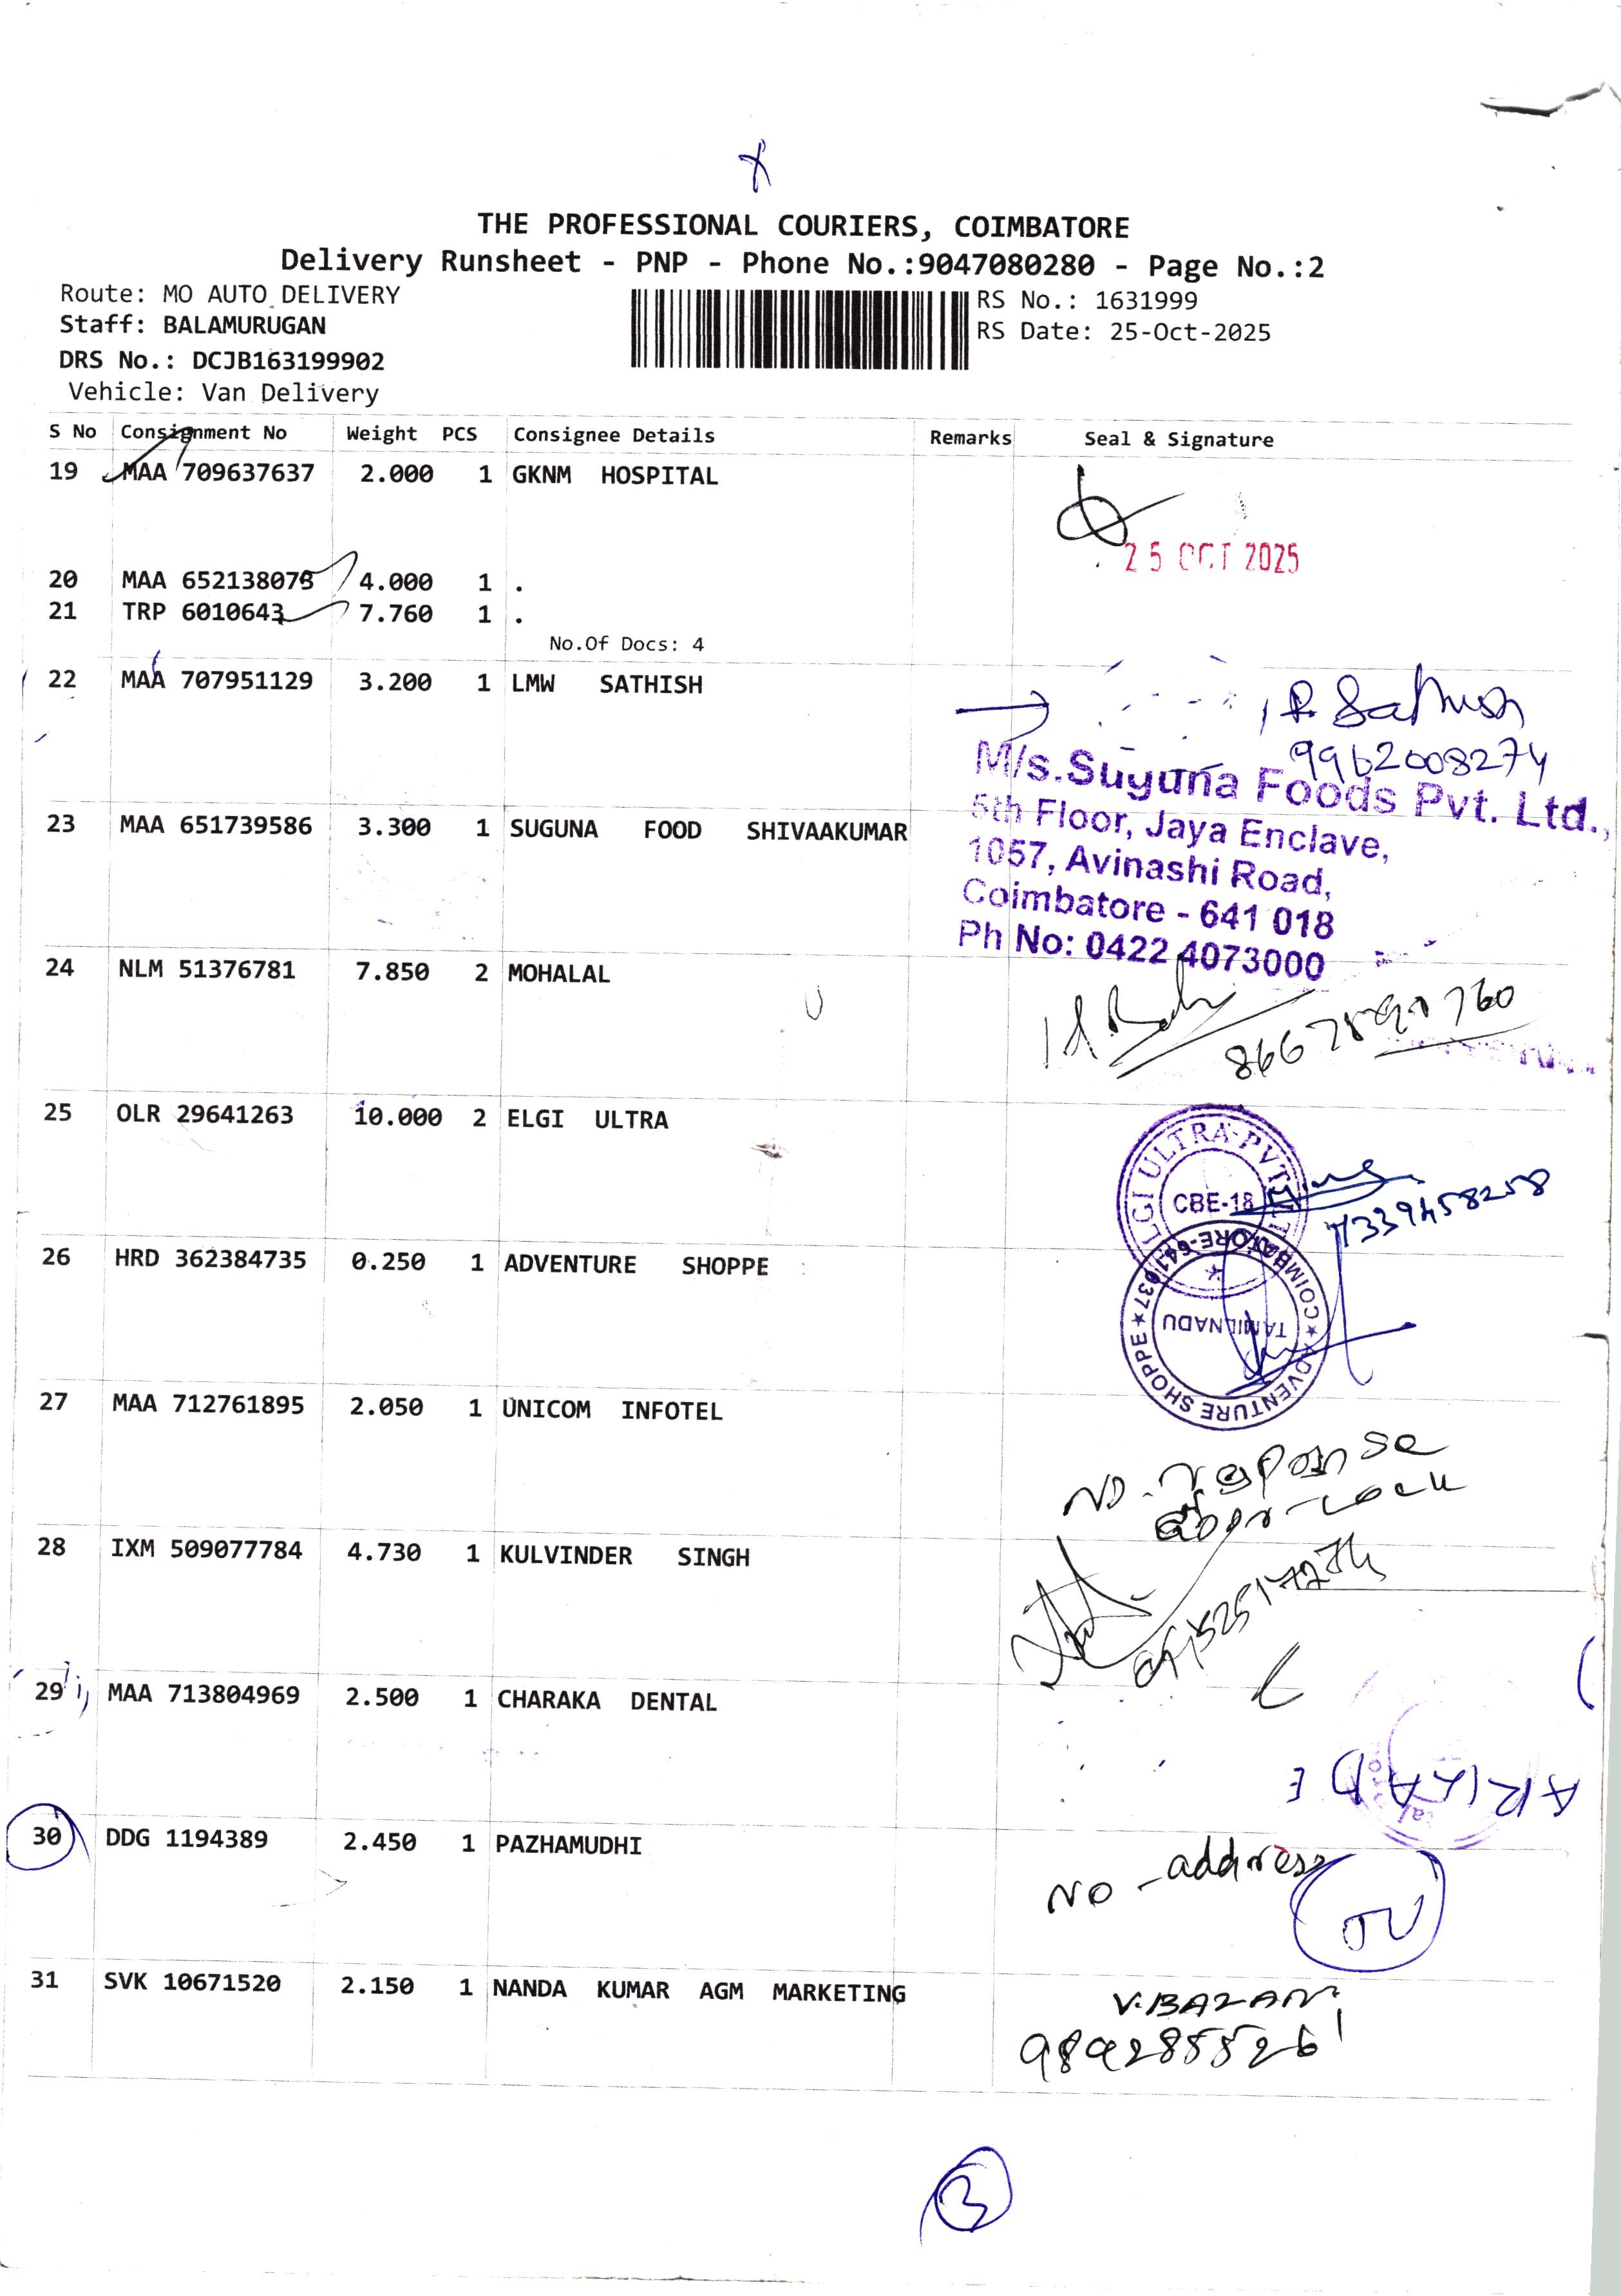 THE PROFESSIONAL COURIERS, COIMBATORE
Delivery Runsheet - PNP - Phone No.:9047080280 - Page No.:2
Route: MO AUTO DELIVERY
RS No.: 1631999
Staff: BALAMURUGAN
RS Date: 25-Oct-2025
DRS No.: DCJB163199902
Vehicle: Van Delivery
S No Consignment No Weight PCS Consignee Details Remarks Seal & Signature
19 MAA 709637637 2.000 1 GKNM HOSPITAL
25 OCT 2025
20 MAA 652138073 4.000 1 .
21 TRP 6010643 7.760 1 .
No.Of Docs: 4
22 MAA 707951129 3.200 1 LMW SATHISH
R Sathish
9962008274
M/s.Suguna Foods Pvt. Ltd.,
23 MAA 651739586 3.300 1 SUGUNA FOOD SHIVAAKUMAR
5th Floor, Jaya Enclave,
1057, Avinashi Road,
Coimbatore - 641 018
Ph No: 0422 4073000
24 NLM 51376781 7.850 2 MOHALAL
25 OLR 29641263 10.000 2 ELGI ULTRA
ELGI ULTRA PVT LTD
CBE-18
26 HRD 362384735 0.250 1 ADVENTURE SHOPPE
ADVENTURE SHOPPE
COIMBATORE-641037
TAMILNADU
27 MAA 712761895 2.050 1 UNICOM INFOTEL
No. response
door-Lock
28 IXM 509077784 4.730 1 KULVINDER SINGH
29 MAA 713804969 2.500 1 CHARAKA DENTAL
30 DDG 1194389 2.450 1 PAZHAMUDHI
NO - address
31 SVK 10671520 2.150 1 NANDA KUMAR AGM MARKETING
9892855261
3